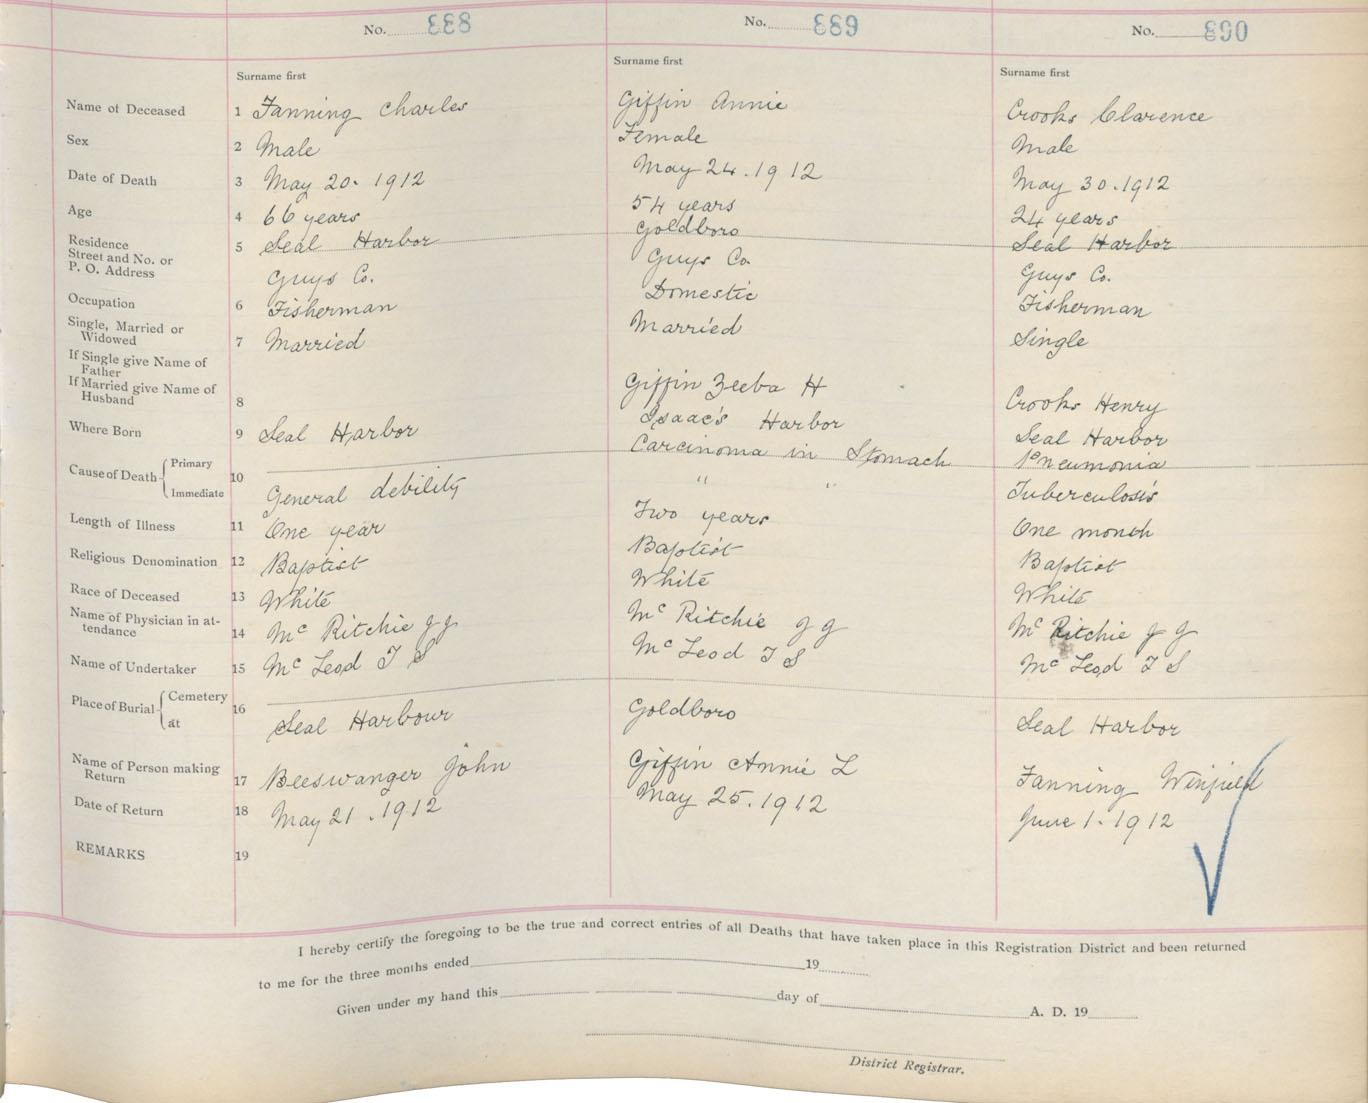 No. 888
No. 889
No. 890
Surname first
Surname first
Surname first
Name of Deceased 1 Fanning Charles
Giffin Annie
Crooks Clarence
Sex 2 Male
Female
Male
Date of Death 3 May 20. 1912
May 24. 1912
May 30. 1912
Age 4 66 years
54 years
24 years
Residence
Street and No. or
P. O. Address
5 Seal Harbor
Guys Co.
Goldboro
Guys Co.
Seal Harbor
Guys Co.
Occupation 6 Fisherman
Domestic
Fisherman
Single, Married or
Widowed
7 Married
Married
Single
If Single give Name of
Father
If Married give Name of
Husband
8
Giffin Zeeba H
Crooks Henry
Where Born 9 Seal Harbor
Isaac's Harbor
Seal Harbor
Cause of Death Primary
Immediate
10
General debility
Carcinoma in Stomach
" "
Pneumonia
Tuberculosis
Length of Illness 11 One year
Two years
One month
Religious Denomination 12 Baptist
Baptist
Baptist
Race of Deceased 13 White
White
White
Name of Physician in at-
tendance
14 Mc Ritchie J J
Mc Ritchie J J
Mc Ritchie J J
Name of Undertaker 15 Mc Leod T S
Mc Leod T S
Mc Leod T S
Place of Burial Cemetery
at
16
Seal Harbour
Goldboro
Seal Harbor
Name of Person making
Return
17 Beeswanger John
Giffin Annie L
Fanning Winfield
Date of Return 18 May 21. 1912
May 25. 1912
June 1. 1912
REMARKS 19
I hereby certify the foregoing to be the true and correct entries of all Deaths that have taken place in this Registration District and been returned
to me for the three months ended 19
Given under my hand this day of A. D. 19
District Registrar.